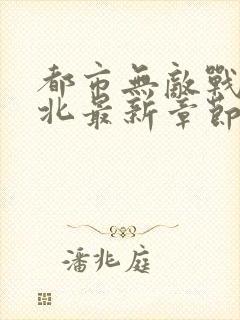 都市無敵戰
北最新章節
潘兆庭